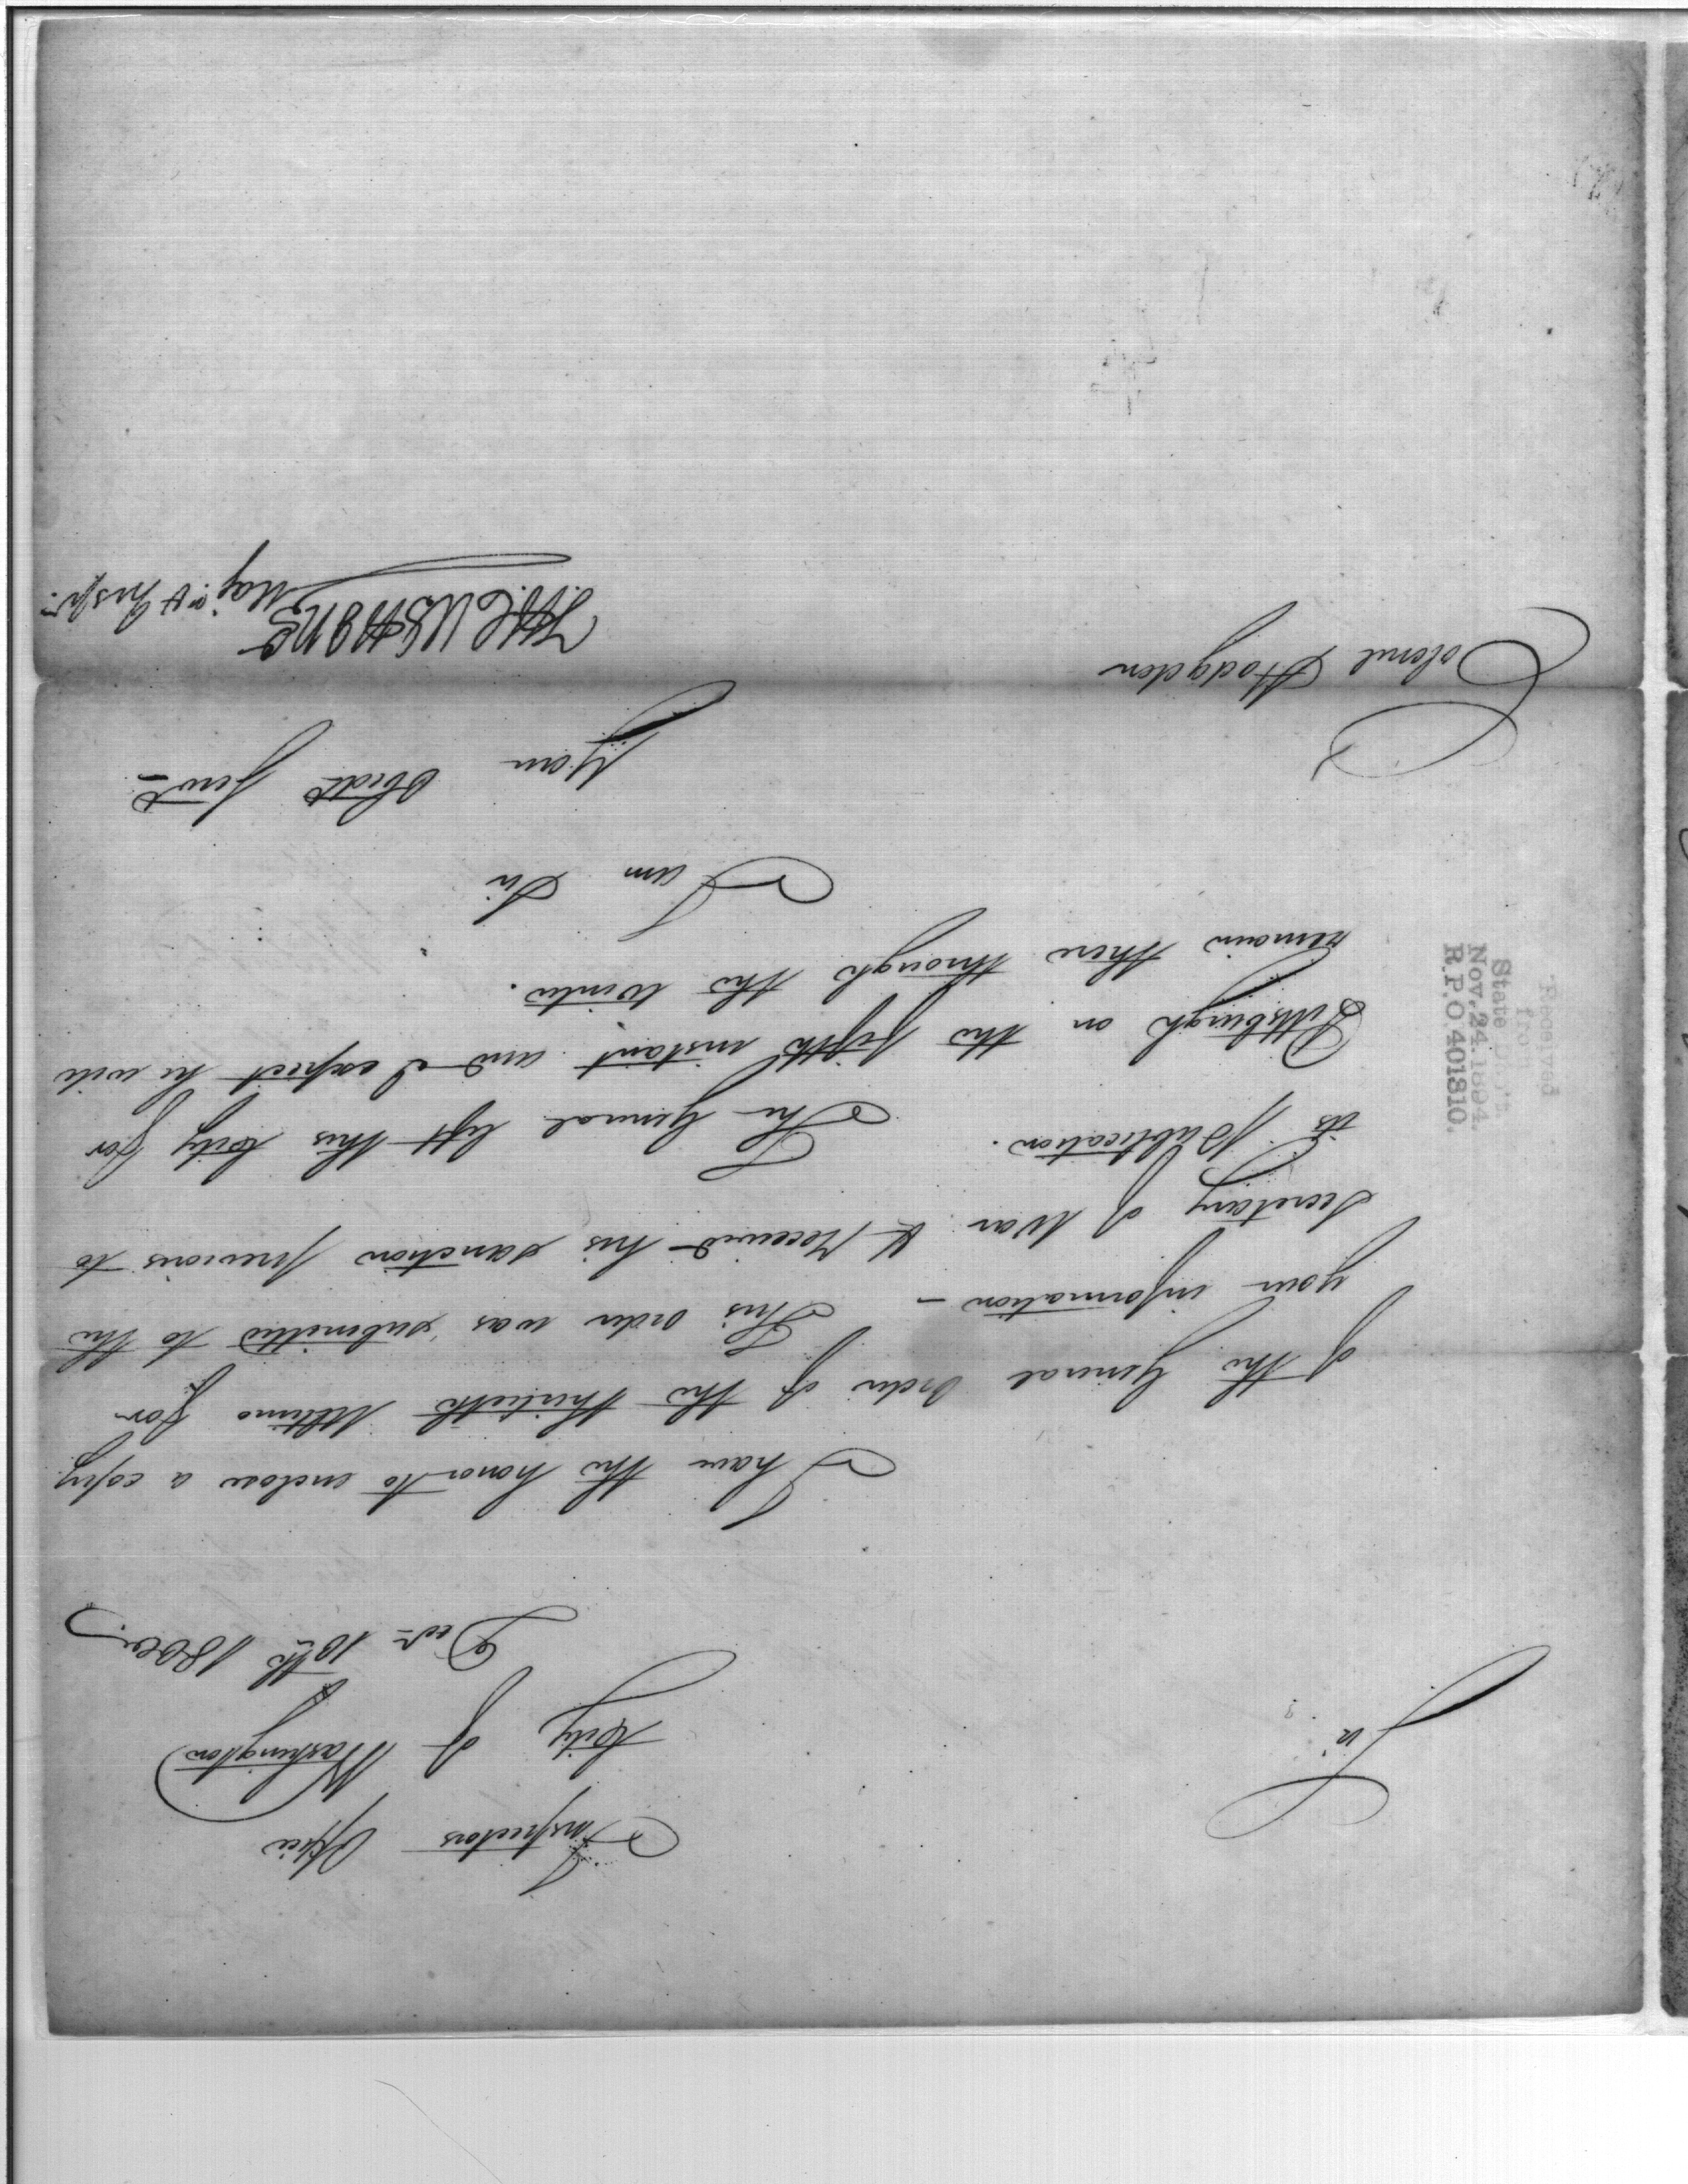 Inspectors Office
City of Washington
Decr 10th 1800.
Sir
I have the honor to enclose a copy
of the General Order of the thirtieth Ultimo for
your information – This order was submitted to the
Secretary of War & Received his sanction previous to
its Publication. The General left this City for
Pittsburgh on the fifth instant and I expect he will
remain there through the Winter.
I am Sir
Your Obedt Servt
T. H. CUSHING
Majr & Inspr.
Colonel Hodgdon
Received
from
State
Nov. 24. 1894.
R. P. O 401310.